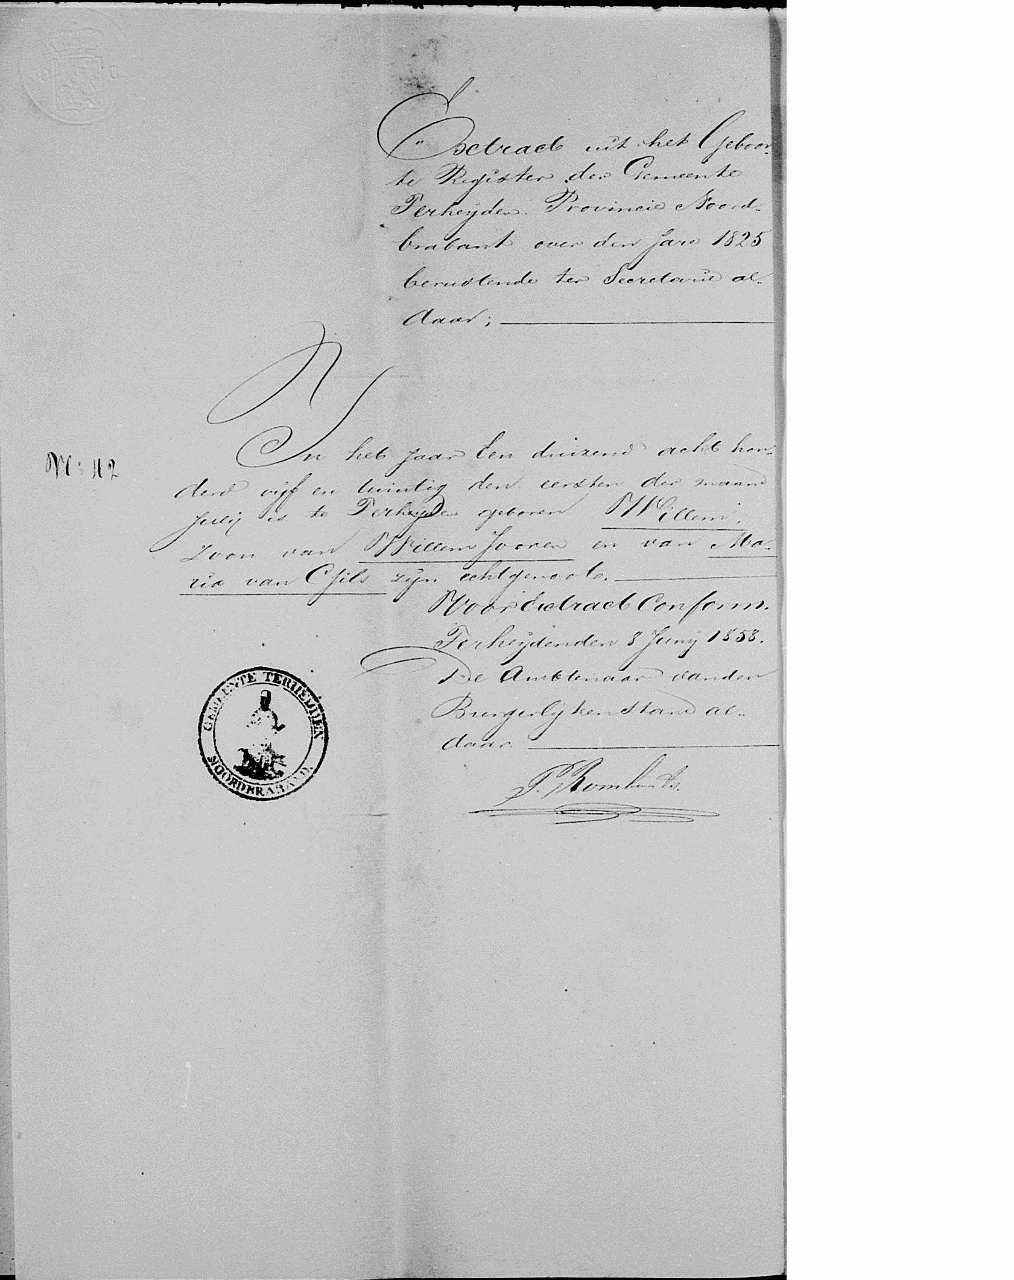 Extract uit het Geboor-
te Register der Gemeente
Terheyden Provincie Noord-
brabant over den jare 1825
berustende ter Secretarie al-
daar;
In het jaar Een duizend acht hon-
derd vijf en twintig den eersten der maand
Julij is te Terheyden geboren Willem,
Zoon van Willem Jooren en van Ma-
ria van Gils zijn echtgenoote.
Voor Extract Conform.
Terheyden den 8 Junij 1858.
De Ambtenaar van den
Burgerlyken Stand al-
daar
P. Rombouts.
N: 42
GEMEENTE TERHEIJDEN
NOORDBRABAND.